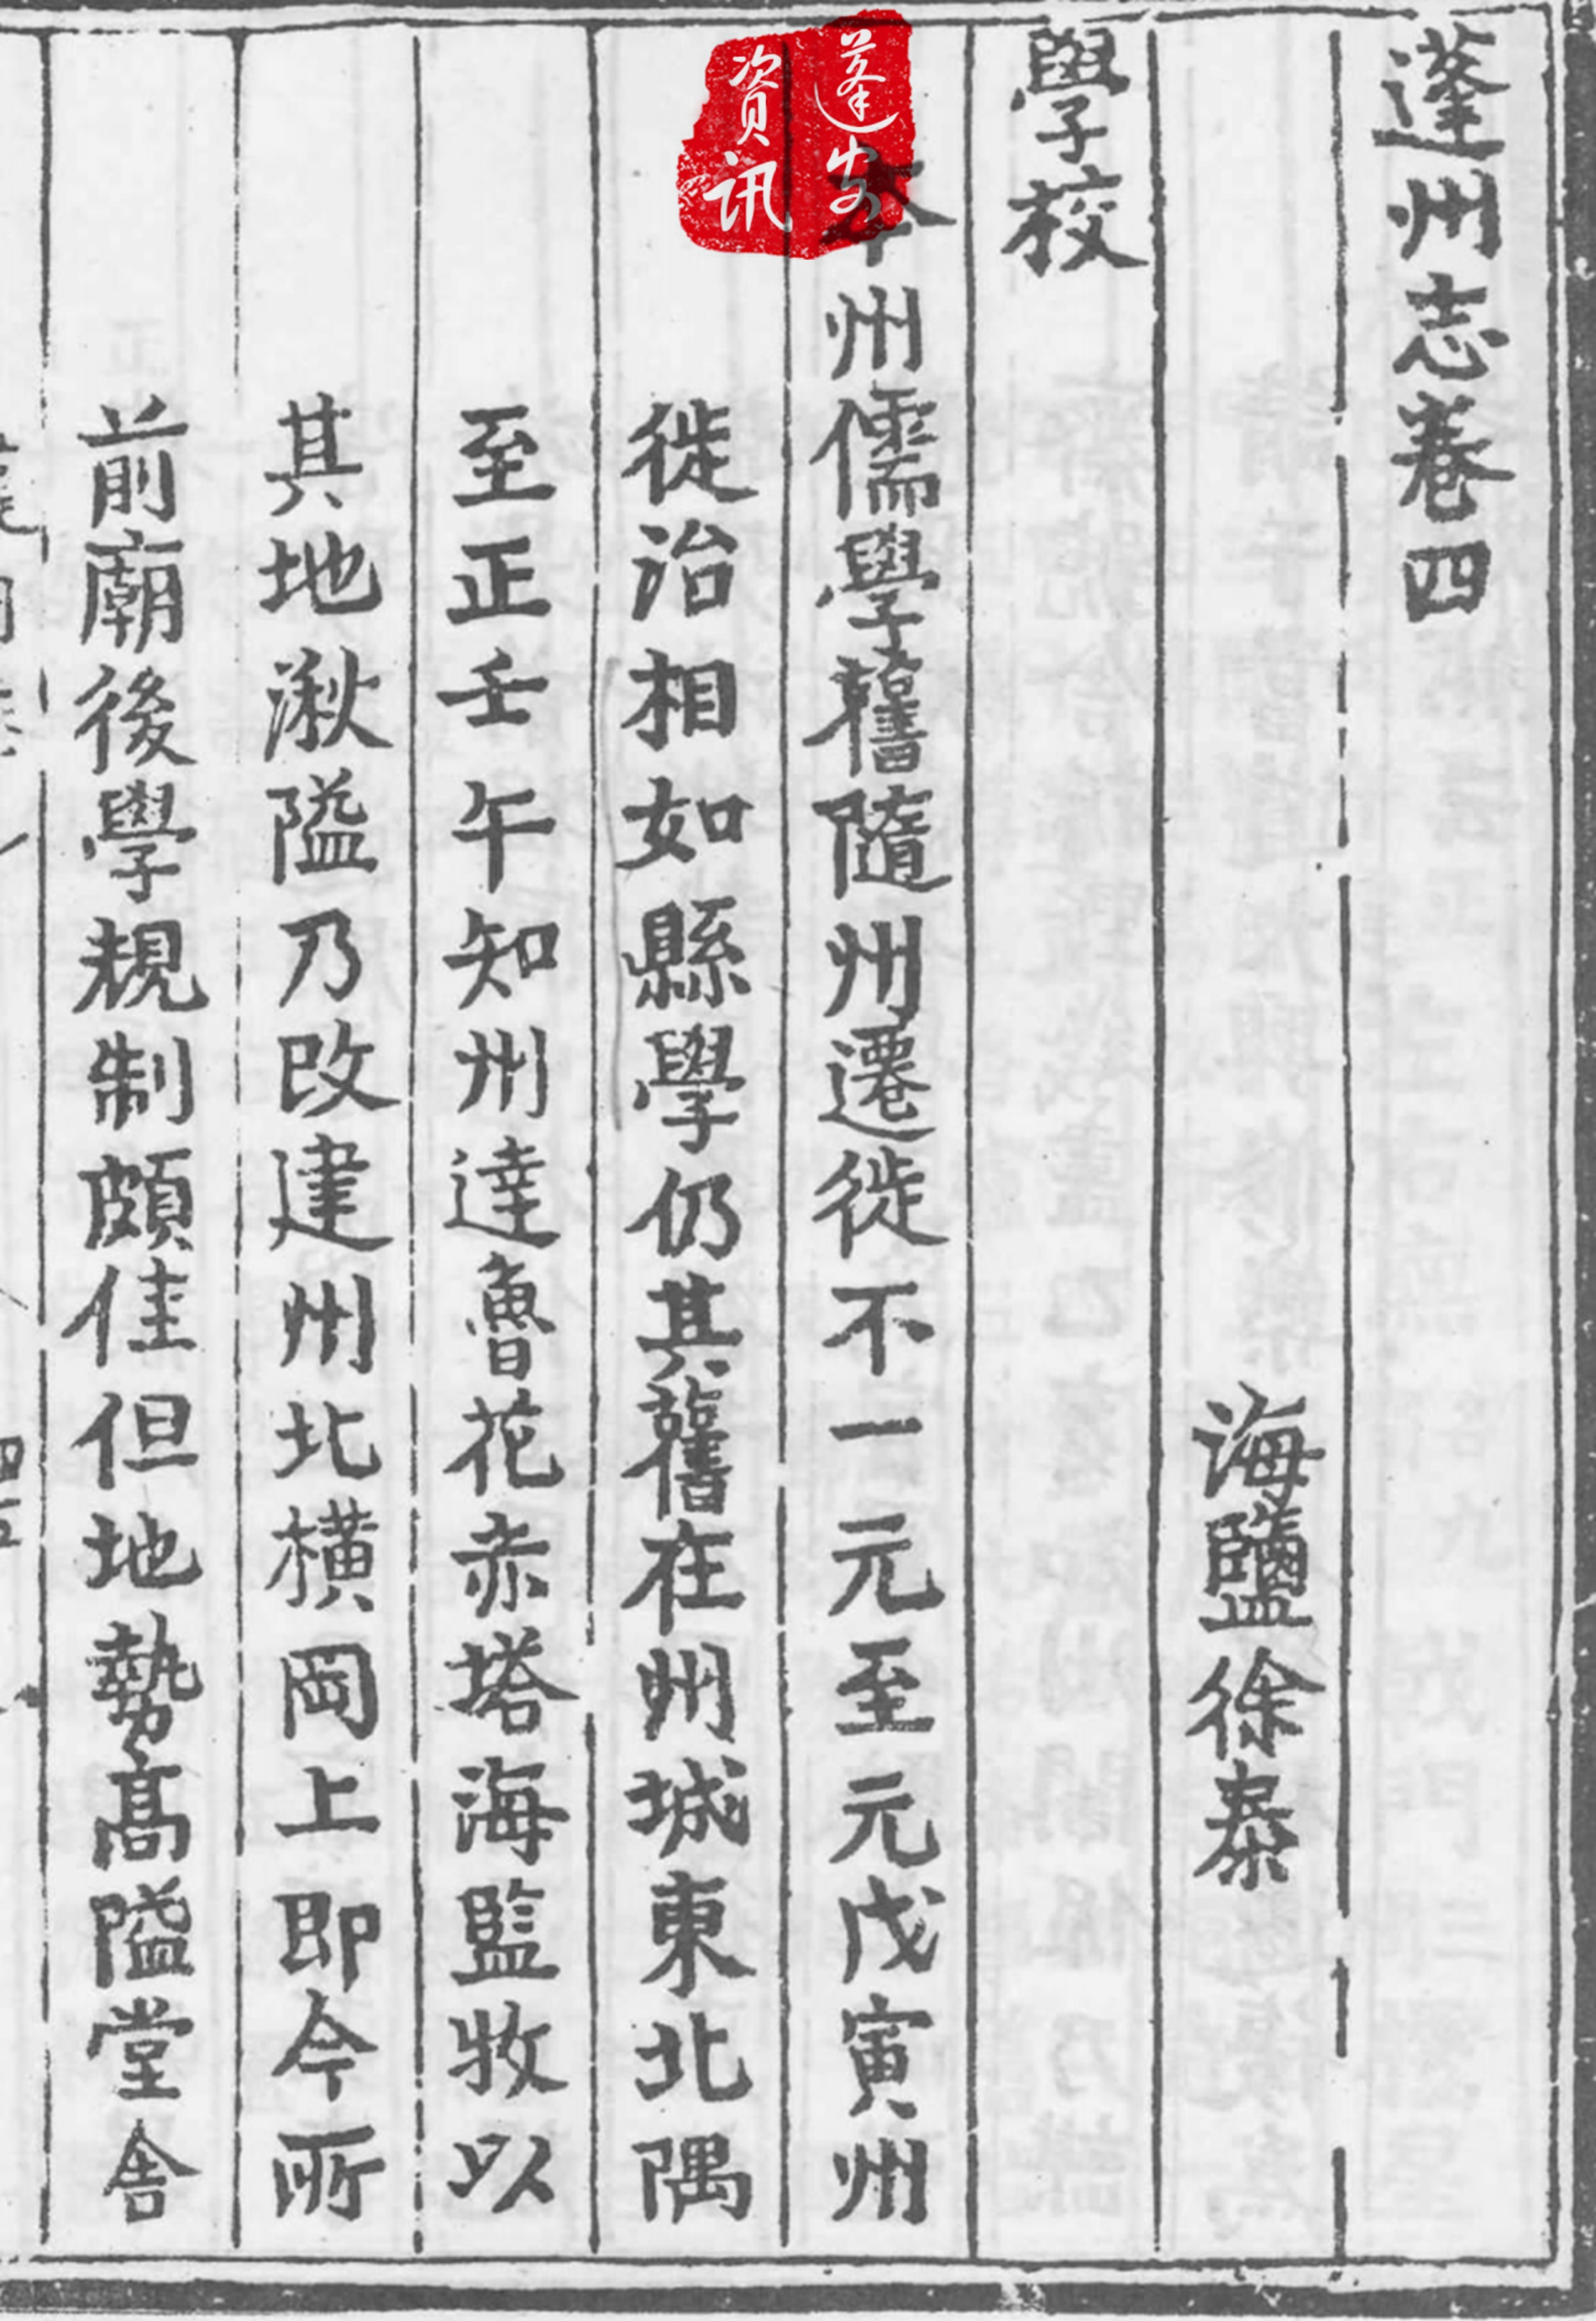 蓬州志卷四
海鹽徐泰
學校
本州儒學舊隨州遷徙不一元至元戊寅州
徙治相如縣學仍其舊在州城東北隅
至正壬午知州達魯花赤塔海監牧以
其地湫隘乃改建州北橫岡上即今所
前廟後學規制頗佳但地勢高隘堂舍
蓬安
资讯